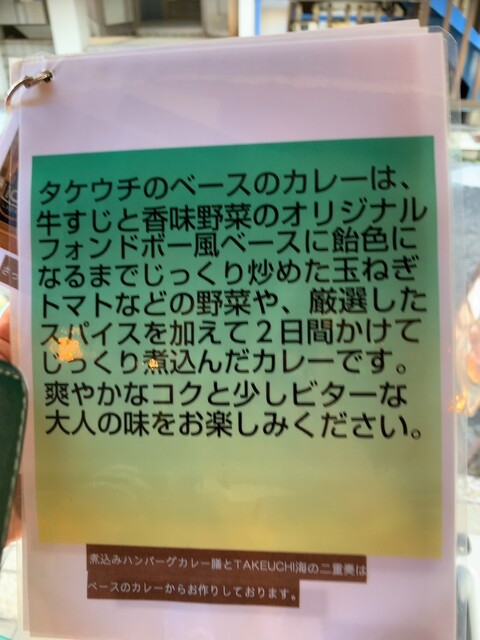 タケウチのベースのカレーは、
牛すじと香味野菜のオリジナル
フォンドボー風ベースに飴色に
なるまでじっくり炒めた玉ねぎ
トマトなどの野菜や、厳選した
スパイスを加えて２日間かけて
じっくり煮込んだカレーです。
爽やかなコクと少しビターな
大人の味をお楽しみください。
煮込みハンバーグカレー膳とTAKEUCHI海の二重奏は
ベースのカレーからお作りしております。